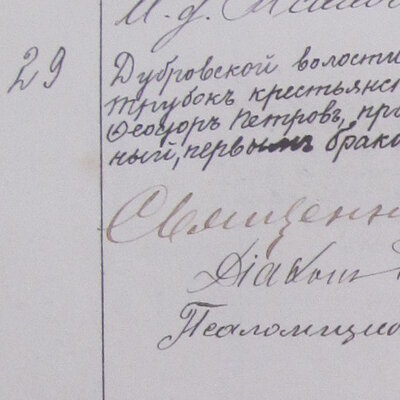 М. д.
29
Дубровской волости
Трубокъ крестьянс
Ѳеодоръ Петровъ, пра
ный, первымъ брако
Священн
Діаконъ
Псаломщик